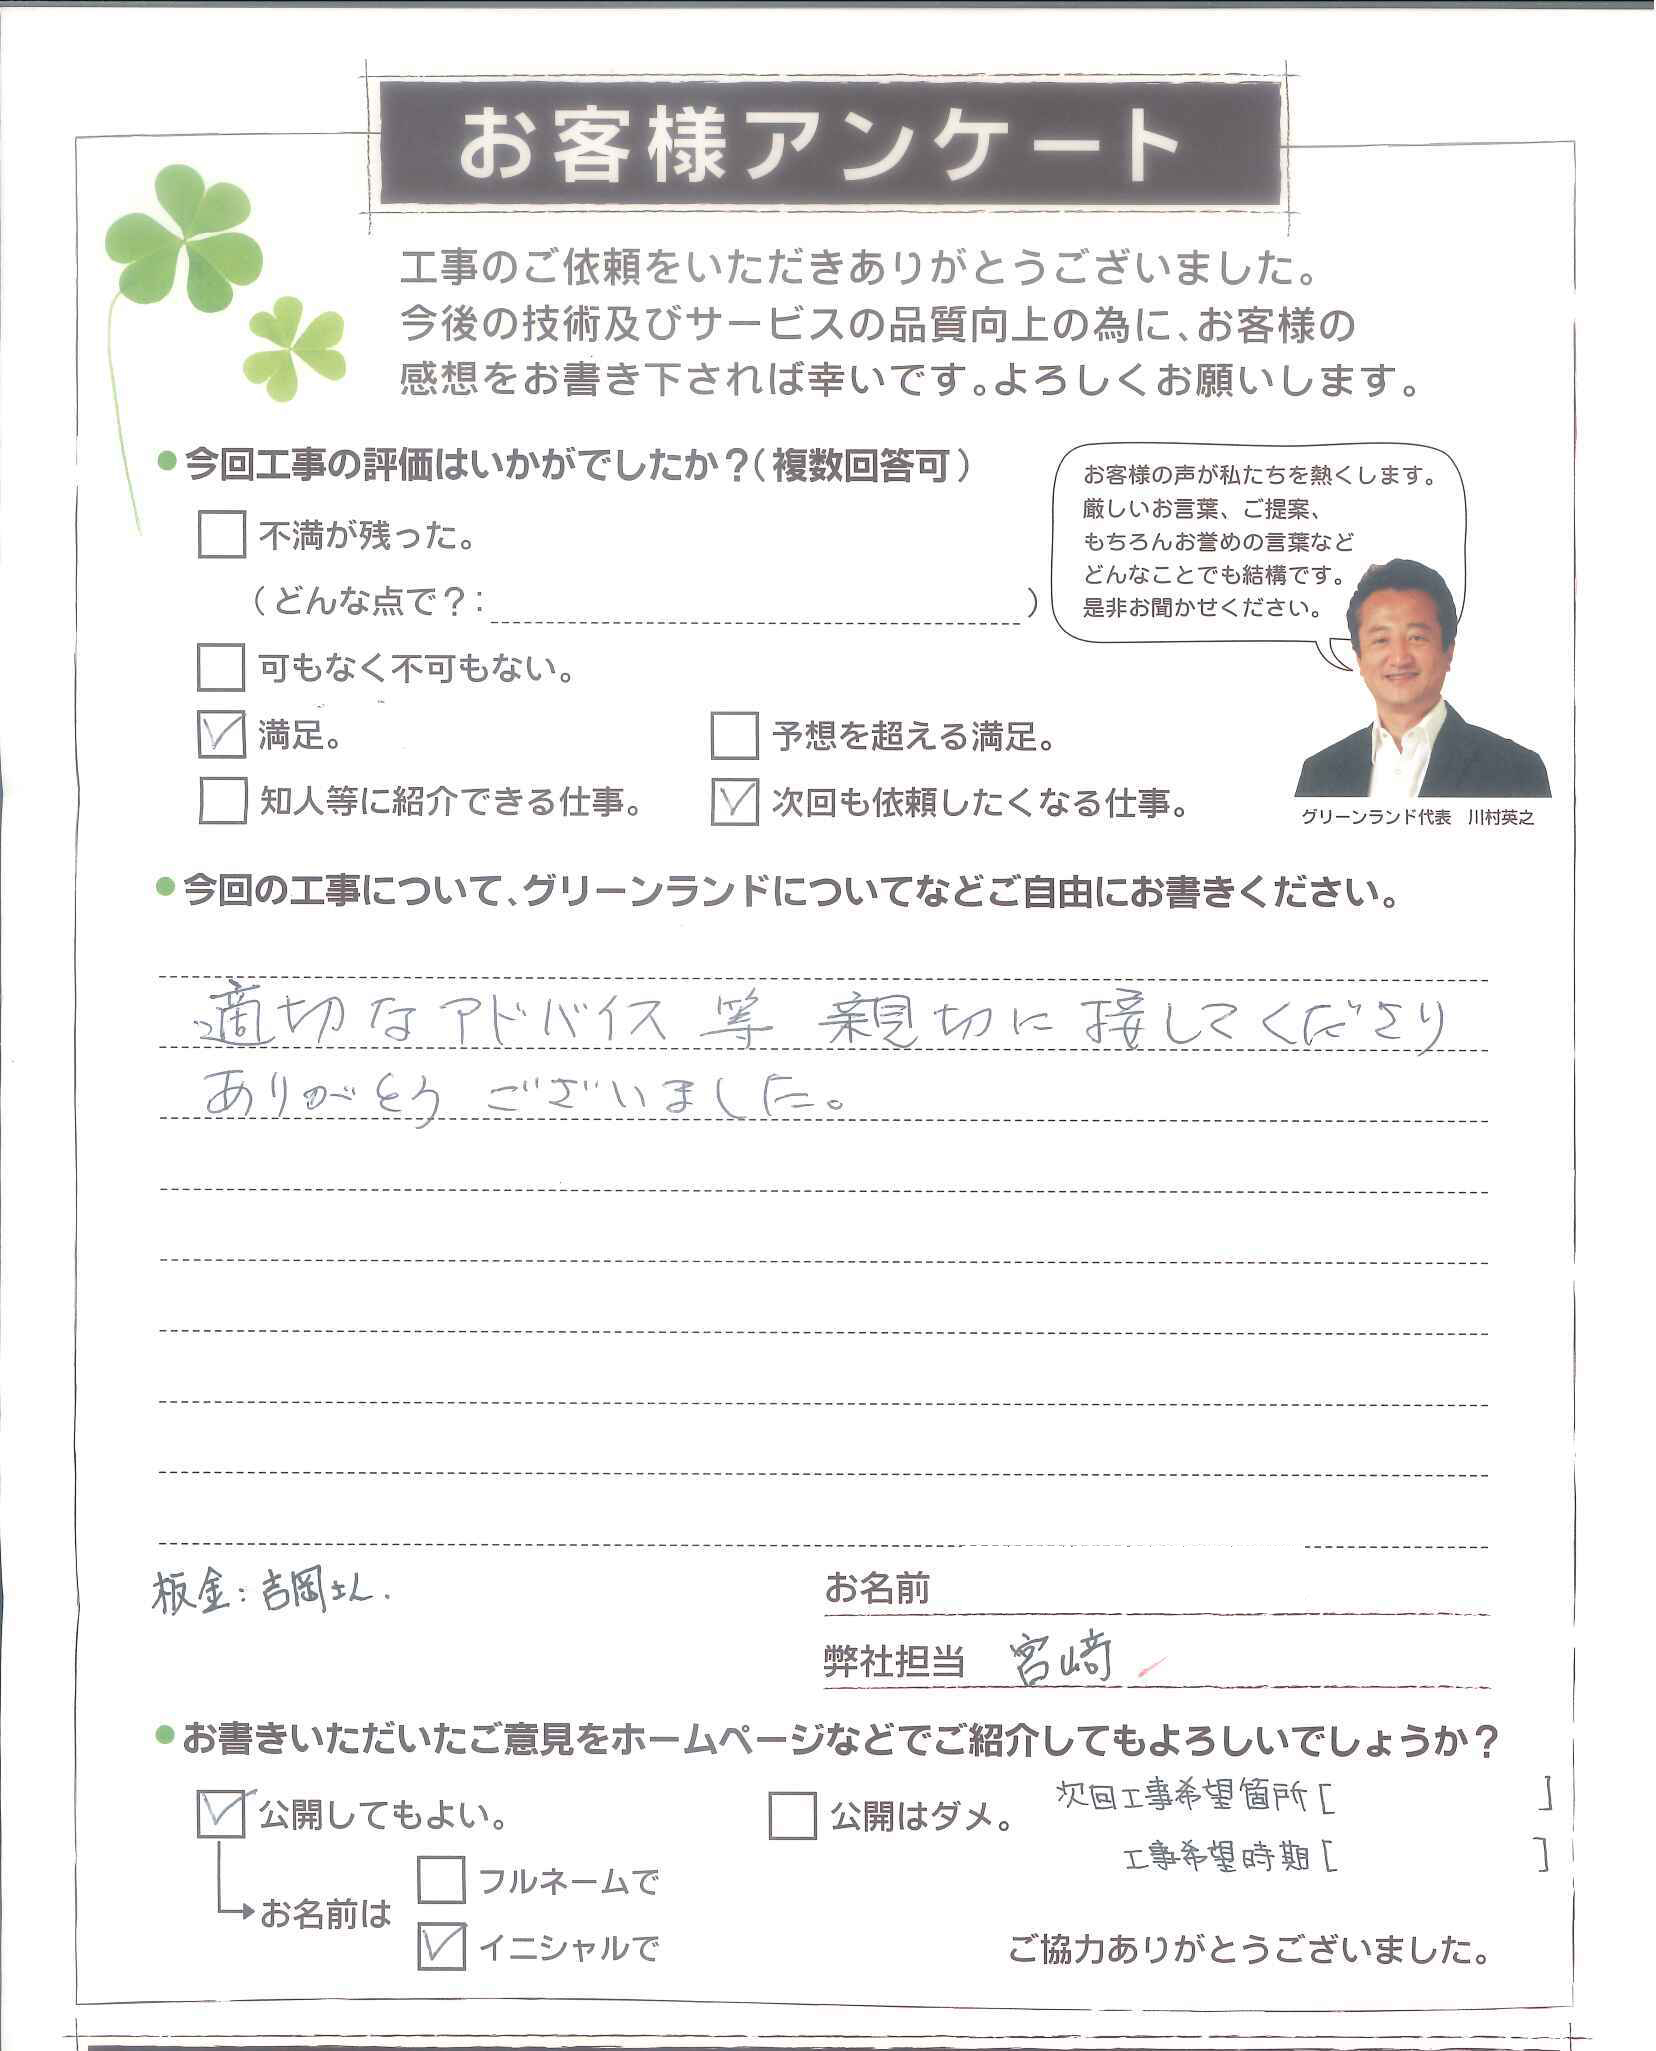 お客様アンケート
工事のご依頼をいただきありがとうございました。
今後の技術及びサービスの品質向上の為に、お客様の
感想をお書き下されば幸いです。よろしくお願いします。
今回工事の評価はいかがでしたか？（複数回答可）
お客様の声が私たちを熱くします。
厳しいお言葉、ご提案、
もちろんお誉めの言葉など
どんなことでも結構です。
是非お聞かせください。
不満が残った。
（どんな点で？： ）
可もなく不可もない。
満足。 予想を超える満足。
知人等に紹介できる仕事。 次回も依頼したくなる仕事。
グリーンランド代表　川村英之
今回の工事について、グリーンランドについてなどご自由にお書きください。
適切なアドバイス等 親切に接してくださり
ありがとうございました。
板金：吉岡さん.
お名前
弊社担当 宮﨑
お書きいただいたご意見をホームページなどでご紹介してもよろしいでしょうか？
公開してもよい。 公開はダメ。
次回工事希望箇所［ ］
工事希望時期［ ］
お名前は
フルネームで
イニシャルで
ご協力ありがとうございました。